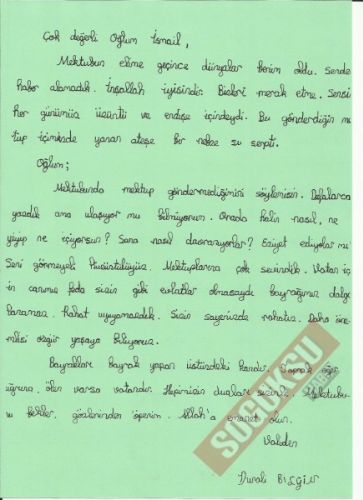 Çok değerli Oğlum İsmail,
Mektubun elime geçince dünyalar benim oldu. Senden
haber alamadık. İnşallah iyisindir. Bizleri merak etme. Sensiz
her günümüz üzüntü ve endişe içindeydi. Bu gönderdiğin mek
tup içimizde yanan ateşe bir nebze su serpti.
Oğlum;
Mektubunda mektup göndermediğimizi söylemişsin. Defalarca
yazdık ama ulaşıyor mu bilmiyorum. Orada halin nasıl, ne
yiyip ne içiyorsun? Sana nasıl davranıyorlar? Eziyet ediyorlar mı
Seni görmeyeli Mektuplarına çok sevindik. Vatan iç
in canımız feda sizin gibi evlatlar olmasaydı bayrağımız dalga
lanamaz. Rahat uyuyamazdık. Sizin sayenizde rahatız. Daha öne
mlisi özgür yaşaya biliyoruz.
Bayrakları bayrak yapan üstündeki kandır. Toprak eğer
uğruna ölen varsa vatandır. Hepimizin duaları sizinle. Mektubu
nu bekler, gözlerinden öperim. Allah'a emanet olun.
Validen
SORUKSU